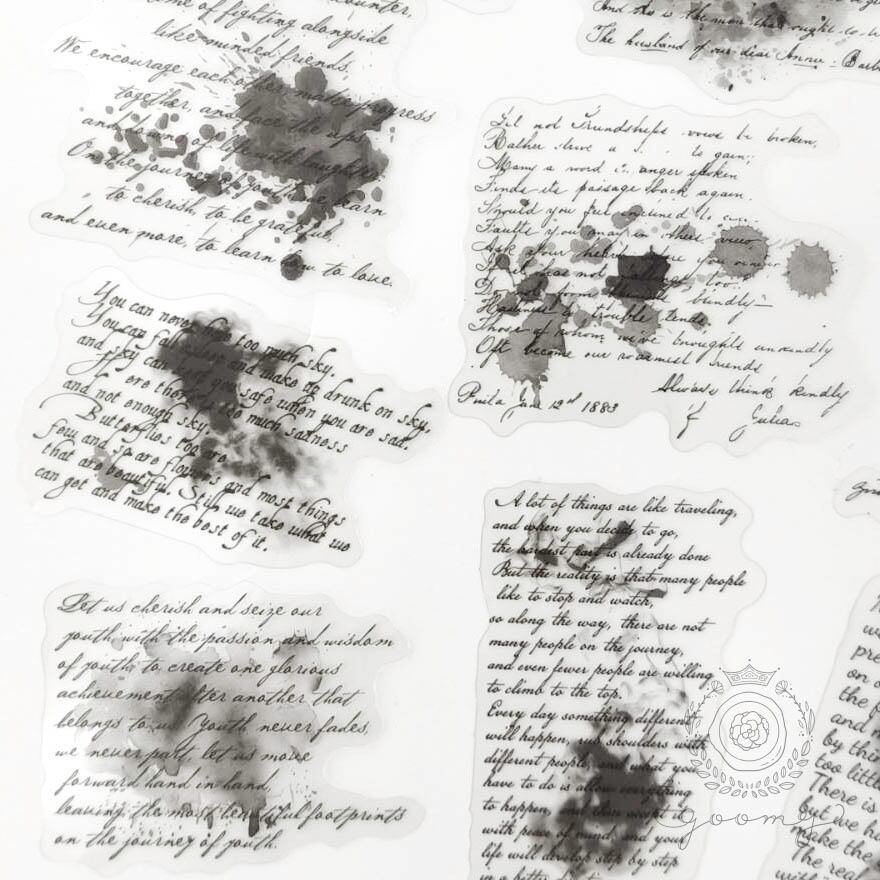 of fighting alongside
like-minded friends,
We encourage each other make progress
together and face the ups
and downs of life with laughter.
On the journey of youth we learn
to cherish, to be grateful,
and even more, to learn how to love.
And he is the man that ought to
The husband of our dear Annie Barb
Let not Friendships vows be broken,
Rather to gain;
Many a word in anger spoken
Finds its passage back again.
Should you feel inclined to
Faults you may in others view,
Ask your heart
not too.
blindly
to trouble tends.
Those of whom we've thought unkindly
Oft become our warmest friends
Always think kindly
Phila Jan 12th 1883
of Julias
You can never have too much sky.
You can fall asleep and wake up drunk on sky,
and sky can keep you safe when you are sad.
ere there is too much sadness
and not enough sky.
Butterflies too are
few and so are flowers and most things
that are beautiful. Still we take what we
can get and make the best of it.
Let us cherish and seize our
youth with the passion and wisdom
of youth to create one glorious
achievement after another that
belongs to us. Youth never fades,
we never part, let us move
forward hand in hand,
leaving the most beautiful footprints
on the journey of youth.
A lot of things are like traveling,
and when you decide to go,
the hardest part is already done
But the reality is that many people
like to stop and watch,
so along the way, there are not
many people on the journey,
and even fewer people are willing
to climb to the top.
Every day something different
will happen, rub shoulders with
different people, and what you
have to do is allow everything
to happen, and then accept it
with peace of mind, and your
life will develop step by step
in a better
on
the
and
by thin
too littl
There is
but we ha
make the
The real
with
goomey